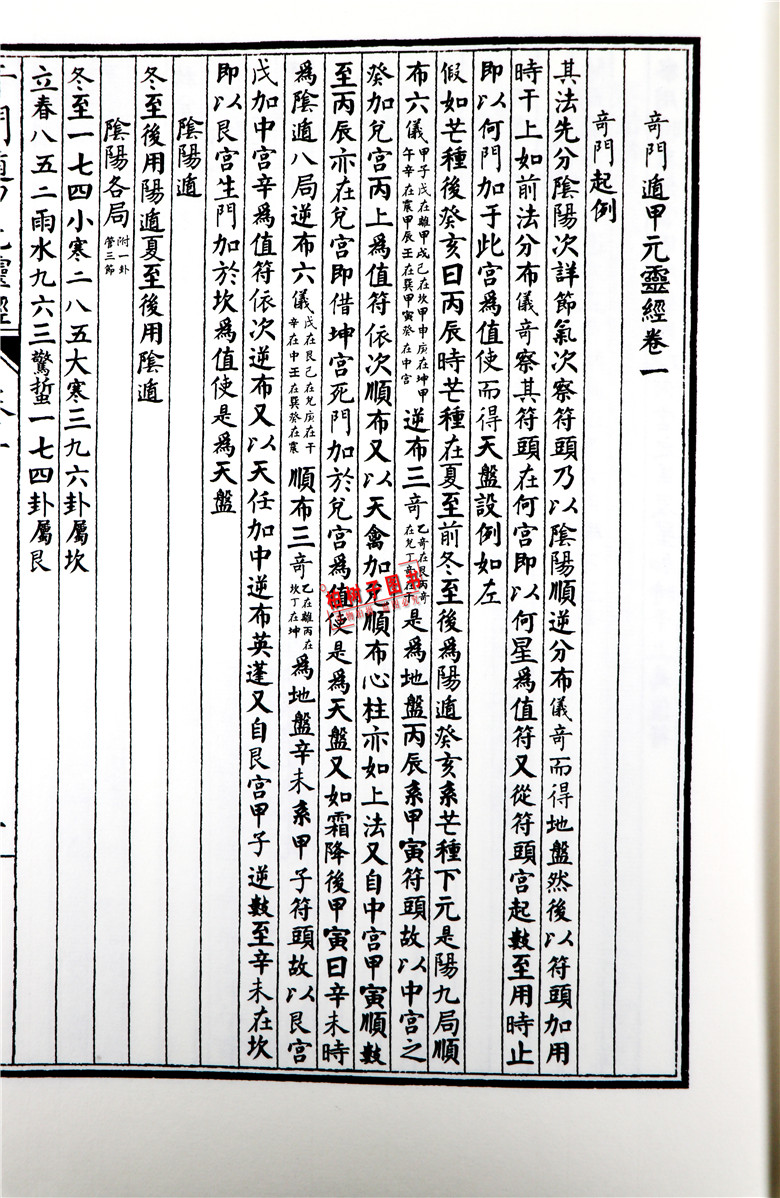 奇門遁甲元靈經卷一
奇門起例
其法先分陰陽次詳節氣次察符頭乃以陰陽順逆分布儀奇而得地盤然後以符頭加用
時干上如前法分布儀奇察其符頭在何宮即以何星爲值符又從符頭宮起數至用時止
即以何門加于此宮爲值使而得天盤設例如左
假如芒種後癸亥日丙辰時芒種在夏至前冬至後爲陽遁癸亥系芒種下元是陽九局順
布六儀甲子戊在離甲戌己在坎甲申庚在坤甲午辛在震甲辰壬在巽甲寅癸在中宮逆布三奇乙奇在艮丙奇在兌丁奇在干是爲地盤丙辰系甲寅符頭故以中宮之
癸加兌宮丙上爲值符依次順布又以天禽加兌順布心柱亦如上法又自中宮甲寅順數
至丙辰亦在兌宮即借坤宮死門加於兌宮爲值使是爲天盤又如霜降後甲寅日辛未時
爲陰遁八局逆布六儀戊在艮己在兌庚在干辛在中壬在巽癸在震順布三奇乙在離丙在坎丁在坤爲地盤辛未系甲子符頭故以艮宮
戊加中宮辛爲值符依次逆布又以天任加中逆布英蓬又自艮宮甲子逆數至辛未在坎
即以艮宮生門加於坎爲值使是爲天盤
陰陽遁
冬至後用陽遁夏至後用陰遁
陰陽各局附一卦管三節
冬至一七四小寒二八五大寒三九六卦屬坎
立春八五二雨水九六三驚蟄一七四卦屬艮
柏樹子圖書